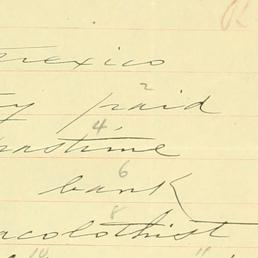 Mexico
2
ty paid
4
pastime
6
bank
8
acolothist
10 11